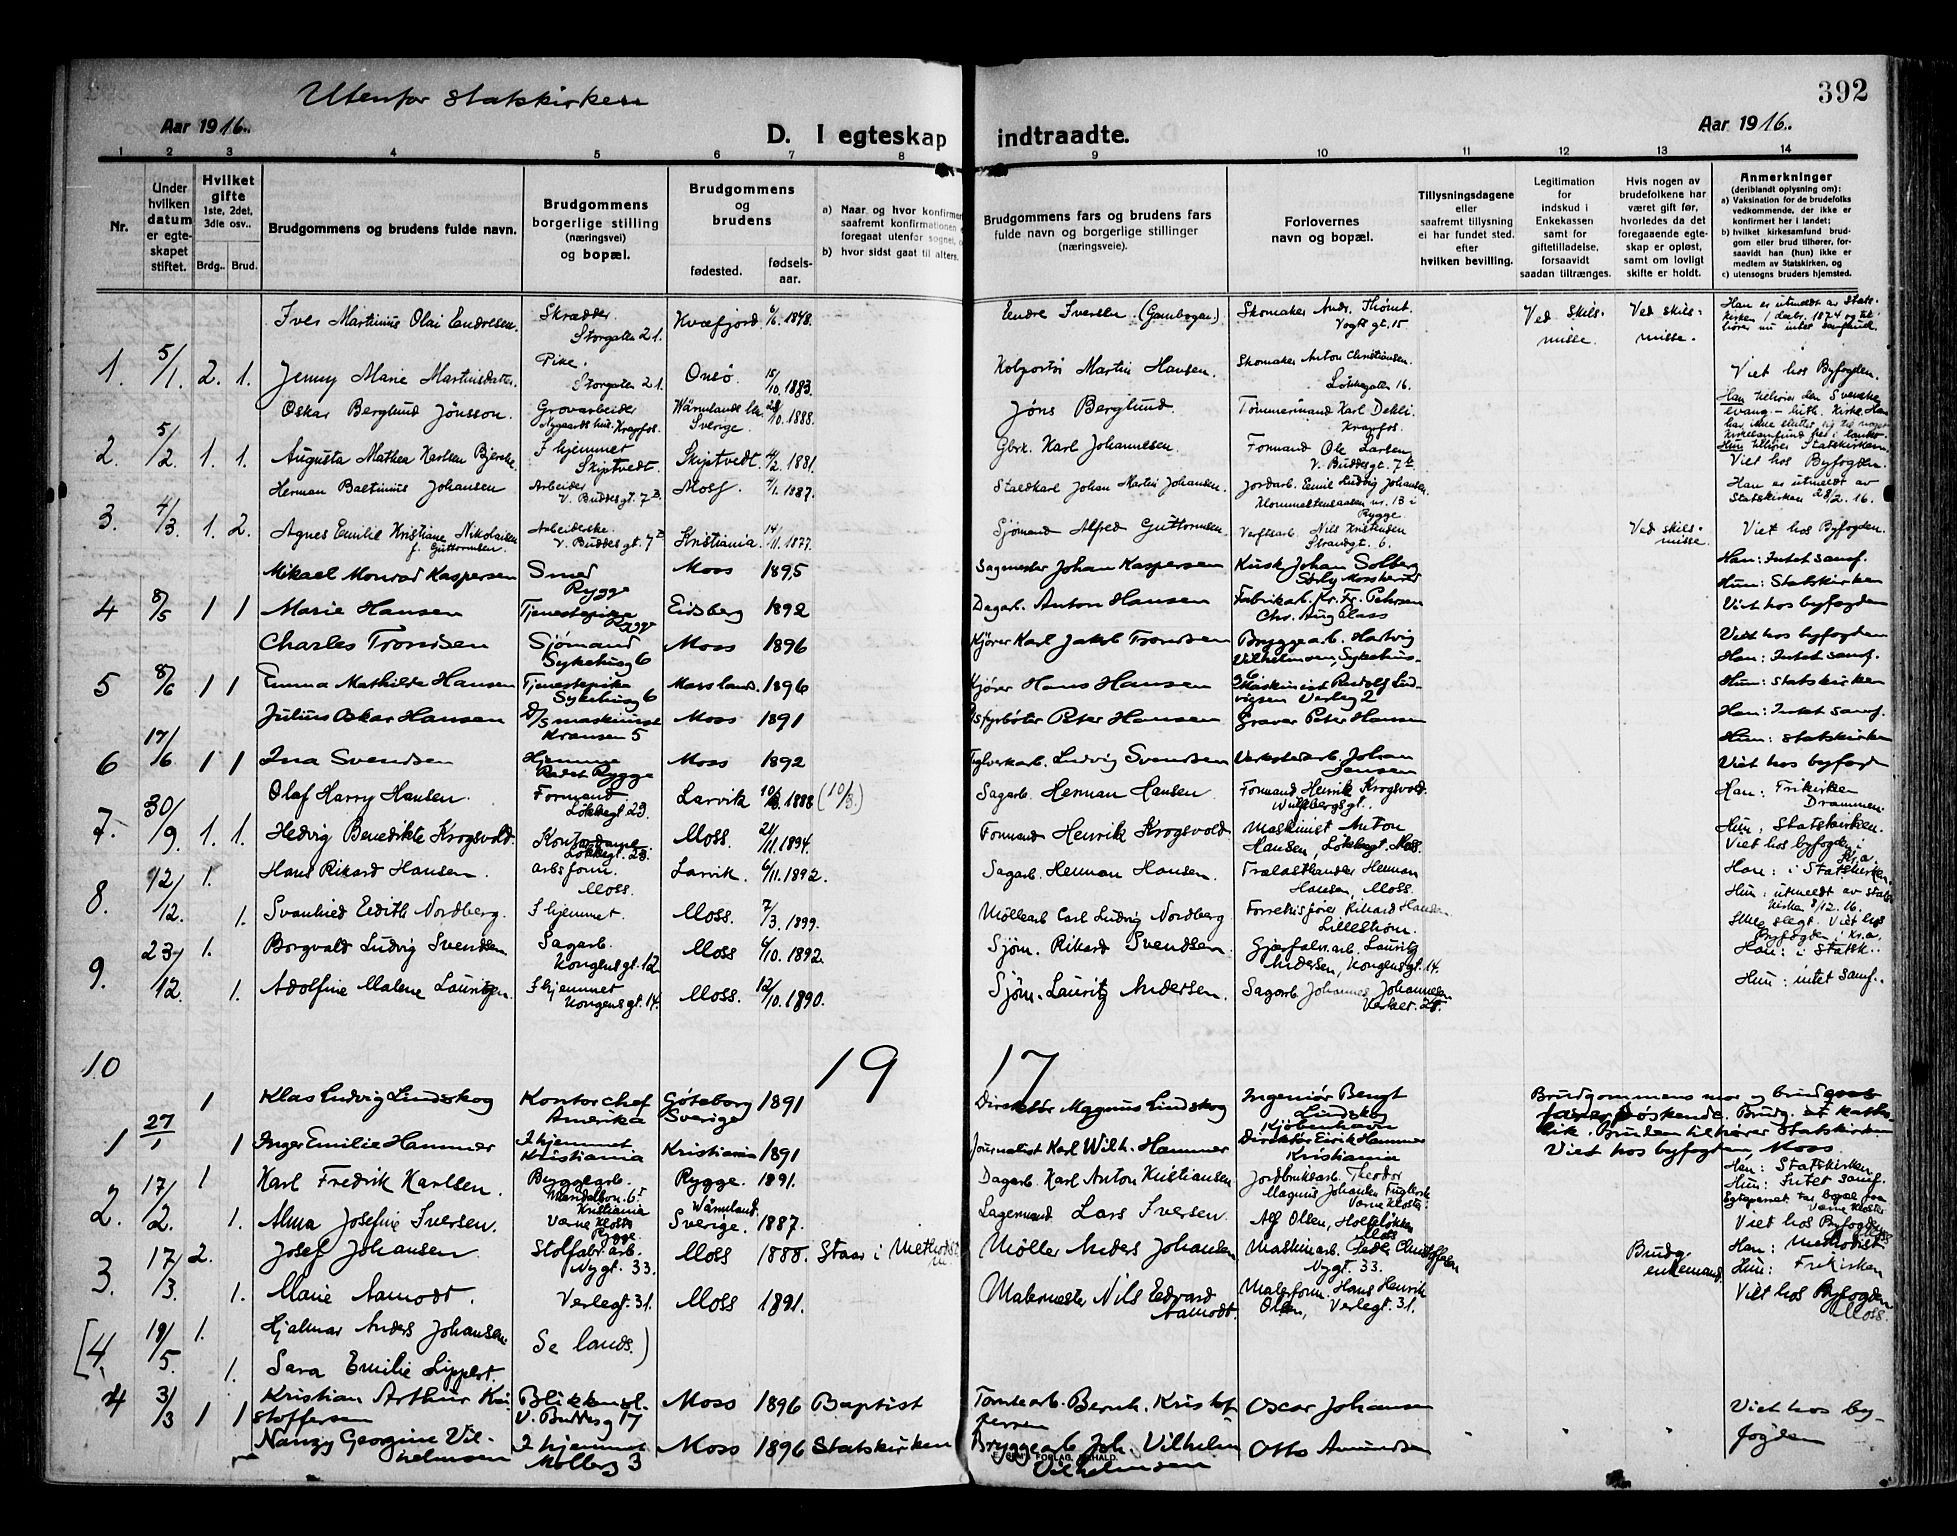 392
Utenfor statskirken
Aar 1916.
D. I egteskap indtraadte.
Aar 1916.
1 2 3 4 5 6 7 8 9 10 11 12 13 14
Nr.
Under hvilken datum er egteskapet stiftet.
Hvilket gifte 1ste, 2det, 3die osv..
Brdg.. Brud.
Brudgommens og brudens fulde navn.
Brudgommens borgerlige stilling (næringsvei) og bopæl.
Brudgommens og brudens
fødested.
fødselsaar.
a) Naar og hvor konfirmert
saafremt konfirmationen
foregaat utenfor sognet,
b) hvor sidst gaat til alters.
Brudgommens fars og brudens fars fulde navn og borgerlige stillinger (næringsveie).
Forlovernes navn og bopæl.
Tillysningsdagene eller saafremt tillysning ei har fundet sted. efter hvilken bevilling.
Legitimation for indskud i Enkekassen samt for giftetilladelse, forsaavidt saadan tiltrænges.
Hvis nogen av brudefolkene har været gift før, hvorledes da det foregaaende egteskap er opløst, samt om lovligt skifte er holdt.
Anmerkninger (deriblandt oplysning om): a) Vaksination for de brudefolks vedkommende, der ikke er konfirmert her i landet; b) hvilket kirkesamfund brudgom eller brud tilhører, forsaavidt han (hun) ikke er medlem av Statskirken, og c) utensogns bruders hjemsted.
Iver Martinius Olai Endresen. Skrædder. Storgaten 21. Kvæfjord. 6/6 1848. Endre Iversen Skomaker Andr. Thømt. Vogts gt. 15 Ved skilsmisse. Ved skilsmisse. Han er utmeldt av Statskirken 1 decbr. 1874 og tilhører nu intet samfund.
1. 5/1. 2. 1. Jenny Marie Martinsdatter Pike. Storgaten 21. Onsø. 15/10 1883. Kolportør Martin Hansen. Skomaker Anton Christiansen. Løkkegaten 16. Viet hos Byfogden.
Oskar Berglund Jönsson. Grovarbeider Krapfos. Wärmlands län Sverige. 28/10 1888. Jøns Berglund. Tømmermand Karl Dehli. Krapfos. Han tilhører den Svenske evang-luth. Kirke.
2. 5/2. 1. 1. Augusta Mathea Karlsen Bjerke I hjemmet Skiptvedt. Skiptvedt. 4/2 1881. Gbr. Karl Johannesen. Formand Ole Larsen V. Buddesgt. 7 Hun tilhører Statskirken. Viet hos Byfogden.
Herman Baltinius Johansen Arbeider V. Buddesgt. 7B Moss. 4/1. 1887. Staldkarl Johan Martin Johansen. Jordarb. Emil Ludvig Johansen nr. 13 i Rygge Han er utmeldt av Statskirken 28/2. 16.
3. 4/3 1. 2. Agnes Emilie Kristiane Nikolaisen f. Guttormsen. Arbeiderske. V. Buddesgt. 7B Kristiania. 14/11. 1877. Sjømand Alfred Guttormsen Verftsarb. Nils Kristensen Strandgt. 6. Ved skilsmisse. Viet hos Byfogden.
Mikael Monrad Kaspersen Smed Rygge Moss 1895 Sagmester Johan Kaspersen Kusk Johan Solberg Han: Intet samf. Hun: Statskirken
4 8/5 1 1 Marie Hansen Tjenestepige Rygge Eidsberg 1892 Dagarb. Anton Hansen Fabrikarb. Kr. Fr. Petersen Chr. Aug Class Viet hos byfogden
Charles Trondsen Sjømand Sykehusg 6 Moss 1896 Kjører Karl Jakob Trondsen Bryggearb. Hartvig Vilhelmsen, Sykehusg 6 Viet hos byfogden Han: Intet samf.
5 8/6 1 1 Emma Mathilde Hansen Tjenestepike Sykehusg 6 Moss land. 1896 Kjører Hans Hansen Maskinist Rudolf Ludvigsen Verleg 2 Hun: statskirken
Julius Oskar Hansen D/S maskinist Kransen 5 Moss 1891 Peter Hansen Graver Peter Hansen Han: Intet samf. Hun: Statskirken
6 17/6 1 1 Ina Svendsen Hjemme Rygge Moss 1892 Teglverkarb. Ludvig Svendsen Verkstedarb. Johan Jensen Viet hos byfogd
Olaf Harry Hansen. Formand Løkkegt. 23. Larvik 10/3. 1888 (10/3.) Sagarb. Herman Hansen Formand, Henrik Krogsvold. Wulfsbergsgt. Han: Frikirken Drammen.
7. 30/9 1. 1. Hedvig Benedikte Krogsvold. Løkkegt. 23. Moss. 21/11. 1894. Formand Henrik Krogsvold Maskinist Anton Hansen, Løkkegt. Moss Hun: Statskirken. Viet hos byfogden i Kr.a.
Hans Rikard Hansen arbsform. Moss. Larvik. 6/11. 1892. Sagarb. Herman Hansen. Trælasthandler Herman Hansen, Moss. Han: i Statskirken.
8. 12/12. 1. 1. Svanhild Edith Nordberg. I hjemmet. Moss. 7/3. 1899. Møllearb Carl Ludvig Nordberg Rikard Hansen Lillestrøm. Hun: utmeldt av statskirken 8/12. 16. Viet hos Byfogden i Kr.a.
Borgvald Ludvig Svendsen Sagarb. Kongensgt. 12 Moss 6/10. 1892. Sjøm. Rikard Svendsen. Lauritz Andersen, Kongensgt. 14. Han: i Statsk.
9. 23/12. 1. 1. Adolfine Malene Lauritzen. I hjemmet Kongensgt. 14. Moss. 12/10. 1890. Sjøm. Lauritz Andersen. Sagarb. Johannes Johannesen Verket. 28. Hun: intet samf.
10
1917
1 Klas Ludvig Lindskog Kontorchef Amerika Göteborg Sverige 1891 Direktør Magnus Lindskog Ingeniør Bengt Lindskog Kjøbenhavn Brudgommens mor og brudens far er søskende. Brudg. er katholik. Bruden tilhører Statskirken
1 27/1 1 Inger Emilie Hammer I hjemmet Kristiania Kristiania 1891 Journalist Karl Wilh. Hammer Direktør Eirik Hammer Kristiania Viet hos byfogden, Moss
Karl Fredrik Karlsen. Byggearb. Kristiania Rygge. 1891. Dagarb. Karl Anton Kristiansen Jordbruksarb. Theodor Magnus Johansen Værne Kloster Han: Statskirken Hun: Intet samf. Egteparret tar bopæl paa Værne Kloster
2. 17/2. 1 1. Alma Josefine Iversen. Værne Kloster Rygge. Wärmland. Sverige. 1887. Lagermand Lars Iversen. Alf Olsen, Moss Viet hos Byfogden Moss
Josef Johansen Stolfabr. arb. Nygt. 33. Moss 1888. Staar i Methodistk. Møller Anders Johansen Maskinarb. Peder Christoffersen Nygt. 33. Brudg. enkemand. Han: Methodist Hun: Frikirken
3. 17/3. 2. 1. Marie Aamodt. Verlegt. 31. Moss 1891. Malermester Nils Edvard Aamodt. Malerform. Hans Henrik Olsen, Verlegt. 31. Viet hos Byfogden Moss.
[4. 19/5. 1. 1. Hjalmar Anders Johansen Se lands.)
Sara Emilie Lippert.
4 31/3 1 1 Kristian Arthur Kristoffersen Blikkensl. V. Buddesg 17 Moss 1896 Baptist Tomtearb. Bernh. Kristoffersen Oscar Johansen Viet hos byfogden
Nanzy Georgine Vilhelmsen I hjemmet Møllerg 3 Moss 1896 Statskirken Bryggearb Joh. Vilhelm Vilhelmsen Otto Amundsen